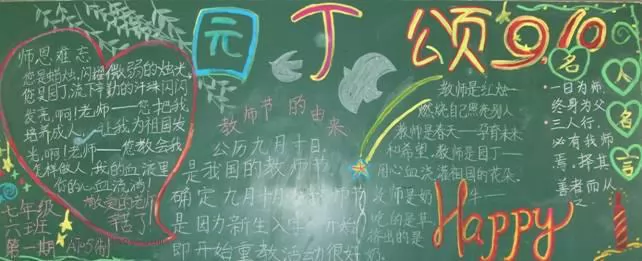 园丁颂 9.10
师恩难忘
您是蜡烛,闪耀微弱的烛光
您是园丁,流下辛勤的汗珠闪闪
发亮,啊!老师——您把我
培养成人,让我为祖国发
光,啊!老师——您教会我
怎样做人,我的血液里
你的心血流淌!
敬爱的老师
辛苦了!
七年级
六班
第一期
教师节的由来
公历九月十日
是我国的教师节
确定九月十的教师节
是因为新生入学
即开始重教活动很好
教师是红烛—
燃烧自己照亮别人
教师是春天—孕育未来
和希望,教师是园丁—
用心血浇灌祖国的花朵
教师是奶牛—
吃的是草
挤出的是
奶。
Happy
名人名言
一日为师,
终身为父
三人行,
必有我师
焉,择其
善者而从
之